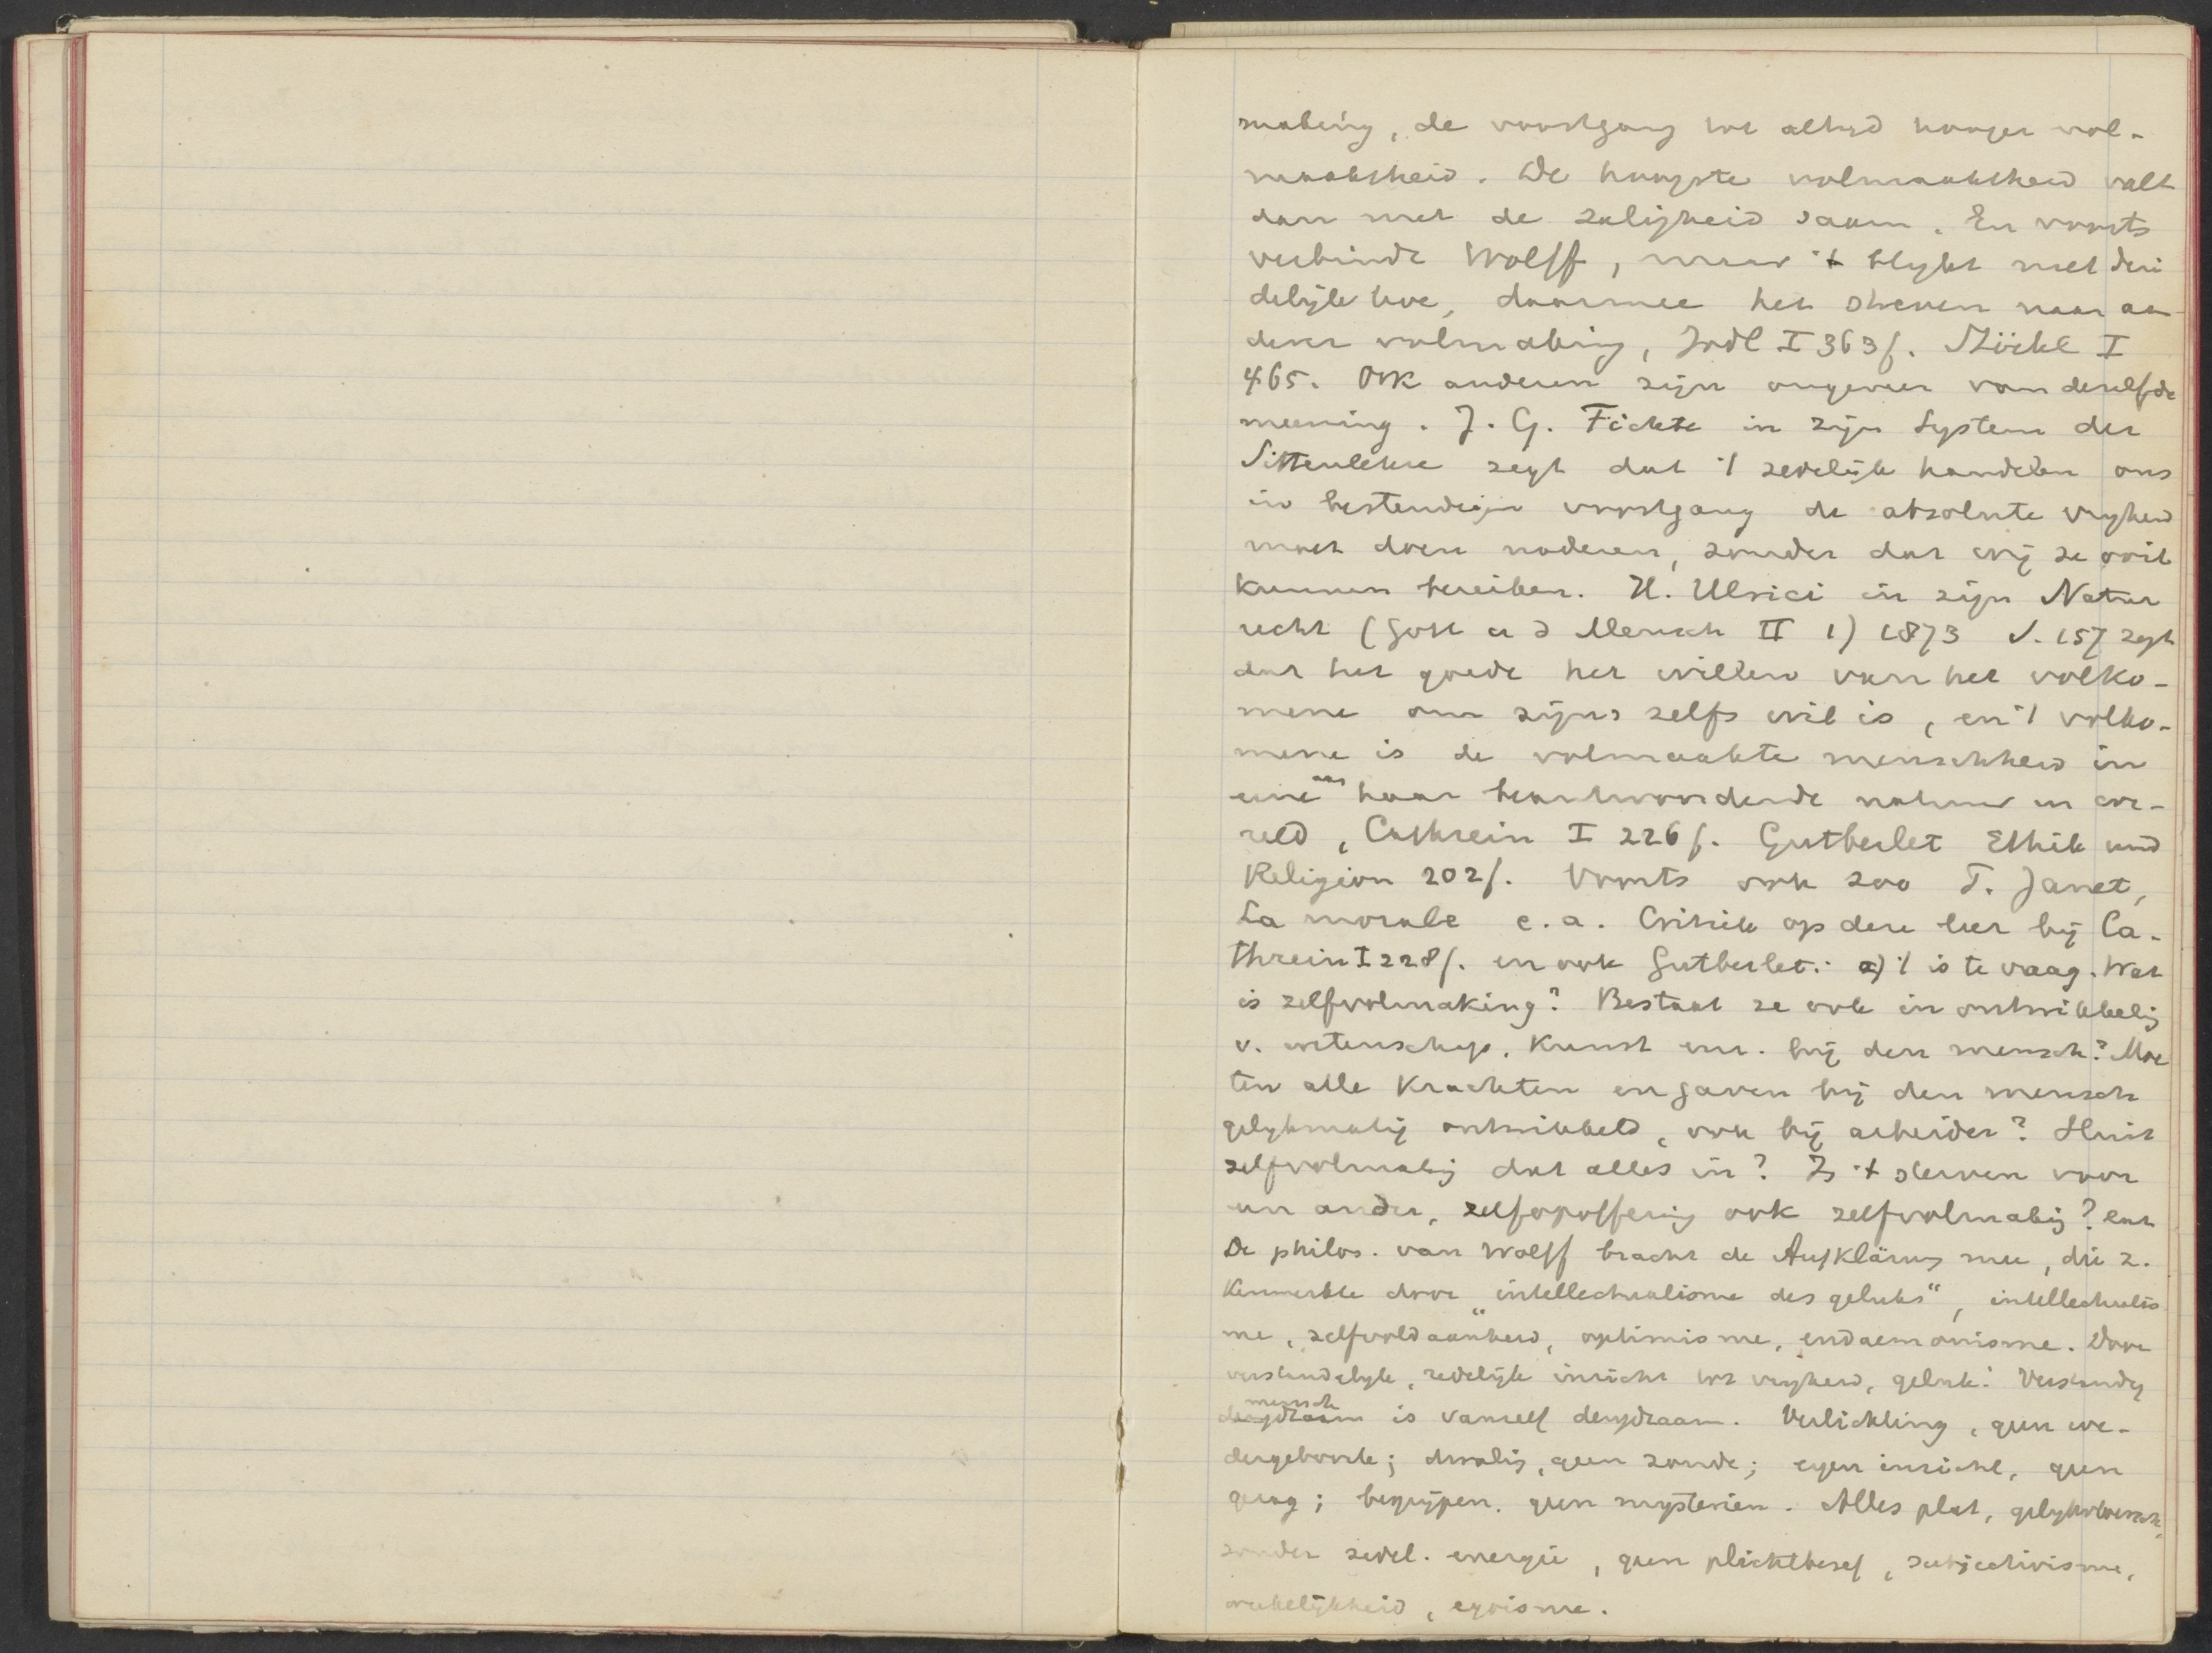 making, de voortgang tot altijd hooger vol-
maaktheid. De hoogste volmaaktheid valt
dan met de zaligheid saam. En voorts
verbindt Wolff, maar 't blijkt niet dui
delijk hoe, daarmee het streven naar an
derer volmaking, Jodl I 363f. Stöckl I
465. Ook anderen zijn ongeveer van dezelfde
meening. J. G. Fichte in zijn System der
Sittenlehre zegt dat 't zedelijk handelen ons
in bestendigen voortgang de absolute vryheid
moet doen naderen, zonder dat wij ze ooit
kunnen bereiken. H. Ulrici in zijn Natur
recht (Gott u d Mensch II 1) 1873 S. 157 zegt
dat het goede het willen van het volko-
mene om zijns zelfs wil is, en 't volko-
mene is de volmaakte menschheid in
eene aan haar beantwoordende natuur en we-
reld, Cathrein I 226f. Gutberlet Ethik und
Religion 202f. Voorts ook zoo P. Janet,
La morale e.a. Critiek op deze leer bij Ca-
threin I 228f. en ook Gutberlet: a) 't is te vaag. Wat
is zelfvolmaking? Bestaat ze ook in ontwikkelig
v. wetenschap, kunst enz. bij den mensch? Moe
ten alle krachten en gaven bij den mensch
gelykmatig ontwikkeld, ook bij arbeider? Sluit
zelfvolmakig dat alles in? Is 't sterven voor
een ander, zelfopoffering ook zelfvolmakig? enz
De philos. van Wolff bracht de Aufklärung mee, die z.
kenmerkte door "intellectualisme des geluks", intellectualis
me, zelfvoldaanheid, optimisme, eudaemonisme. Door
verstandelyk, redelijk inzicht tot vryheid, geluk. Verstandig
mensch is vanzelf deugdzaam. Verlichting, geen we-
dergeboorte; dwalig, geen zonde; eigen inzicht, geen
gezag; begrijpen, geen mysterien. Alles plat, gelykvloersch,
zonder zedel. energie, geen plichtbesef, subjectivisme,
wekelijkheid, egoisme.